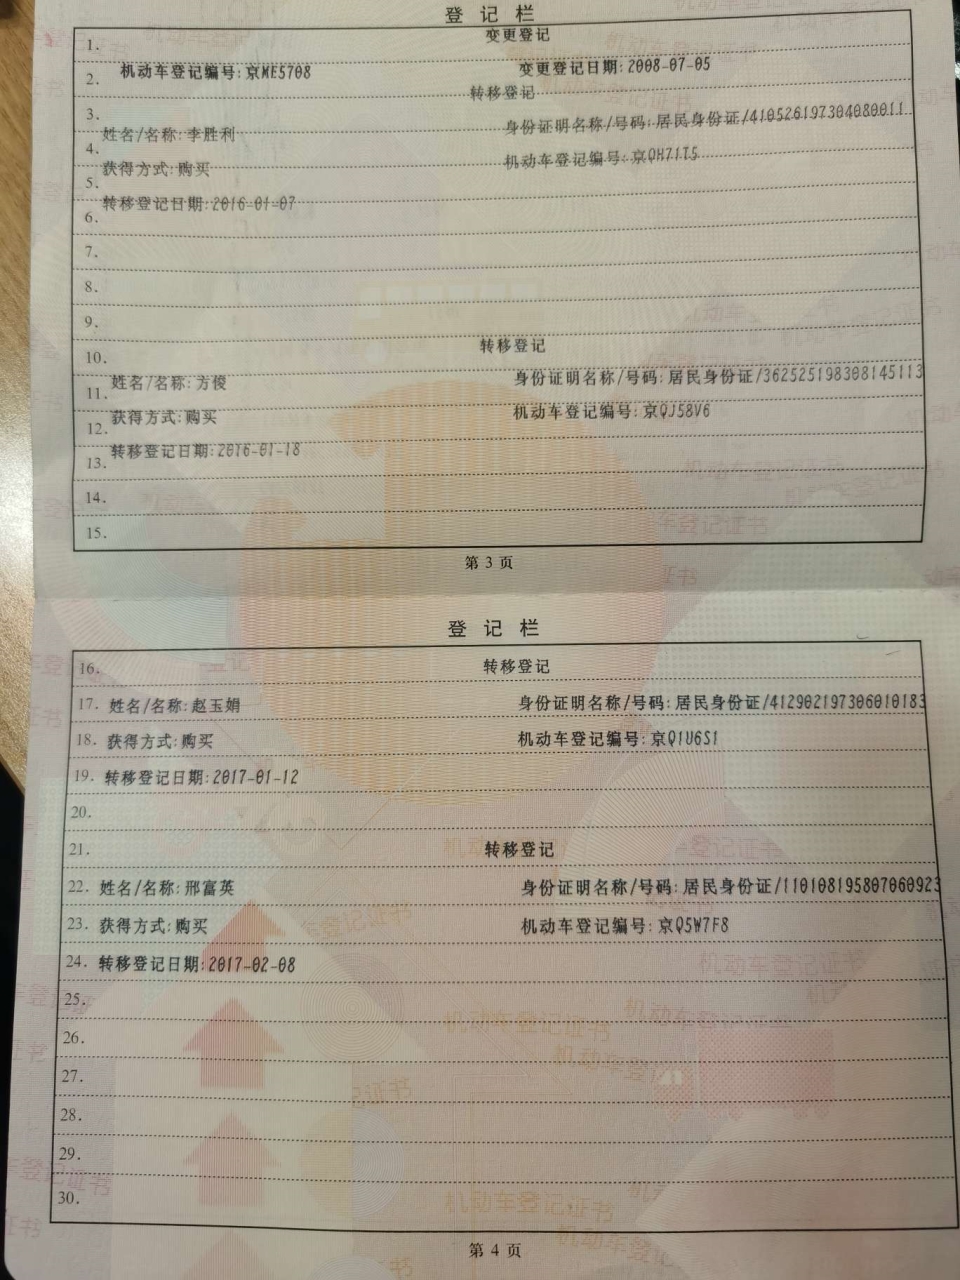 登记栏
1. 变更登记
2. 机动车登记编号:京ME5708 变更登记日期:2008-07-05
3. 转移登记
4. 姓名/名称:李胜利 身份证明名称/号码:居民身份证/410526197304080011
5. 获得方式:购买 机动车登记编号:京QH71T5
6. 转移登记日期:2016-01-07
7.
8.
9.
10. 转移登记
11. 姓名/名称:方俊 身份证明名称/号码:居民身份证/362525198308145113
12. 获得方式:购买 机动车登记编号:京QJ58V6
13. 转移登记日期:2016-01-18
14.
15.
第 3 页
登记栏
16. 转移登记
17. 姓名/名称:赵玉娟 身份证明名称/号码:居民身份证/412902197306010183
18. 获得方式:购买 机动车登记编号:京Q1U6S1
19. 转移登记日期:2017-01-12
20.
21. 转移登记
22. 姓名/名称:邢富英 身份证明名称/号码:居民身份证/110108195807060923
23. 获得方式:购买 机动车登记编号:京Q5W7F8
24. 转移登记日期:2017-02-08
25.
26.
27.
28.
29.
30.
第 4 页